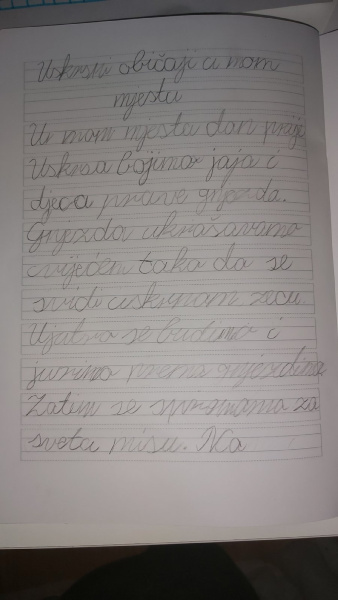 Uskrsni običaji u mom
mjestu
U mom mjestu dan prije
Uskrsa bojimo jaja i
djeca prave gnijezda.
Gnijezda ukrašavamo
cvijećem tako da se
svidi uskrsnom zecu.
Ujutro se budimo i
jurimo prema gnijezdima
Zatim se spremamo za
svetu misu. Na